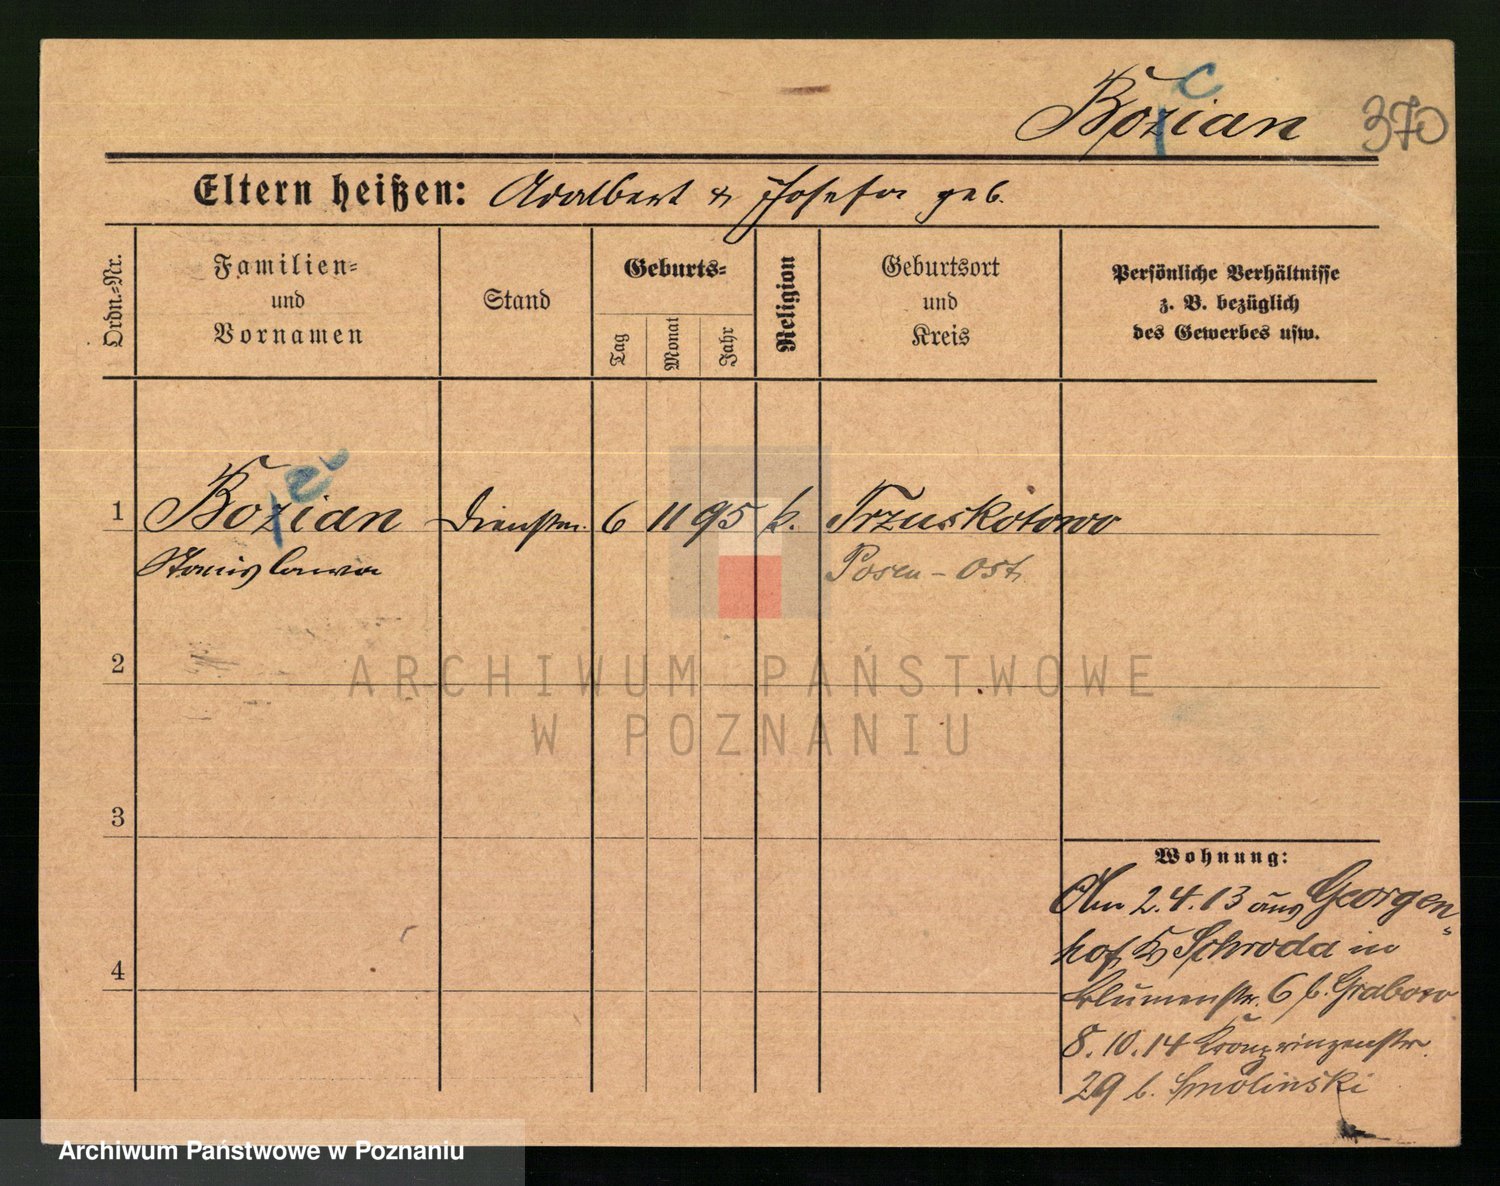 Bozian 370
c
Eltern heißen: Adalbert & Josefa geb.
Ordn.-Nr.
Familien-
und
Vornamen
Stand
Geburts-
Tag
Monat
Jahr
Religion
Geburtsort
und
Kreis
Persönliche Verhältnisse
z. B. bezüglich
des Gewerbes usw.
1 Bozian Dienstm. 6 11 95 k. Trzuskotowo
Stanislawa Posen-Ost
2
3
4
ARCHIWUM PAŃSTWOWE
W POZNANIU
Wohnung:
Am 2.4.13 aus Georgen-
hof Kr Schroda in
Blumenstr. 6 b. Grabow
8.10.14 Kronprinzenstr.
29 b. Smolinski
Archiwum Państwowe w Poznaniu